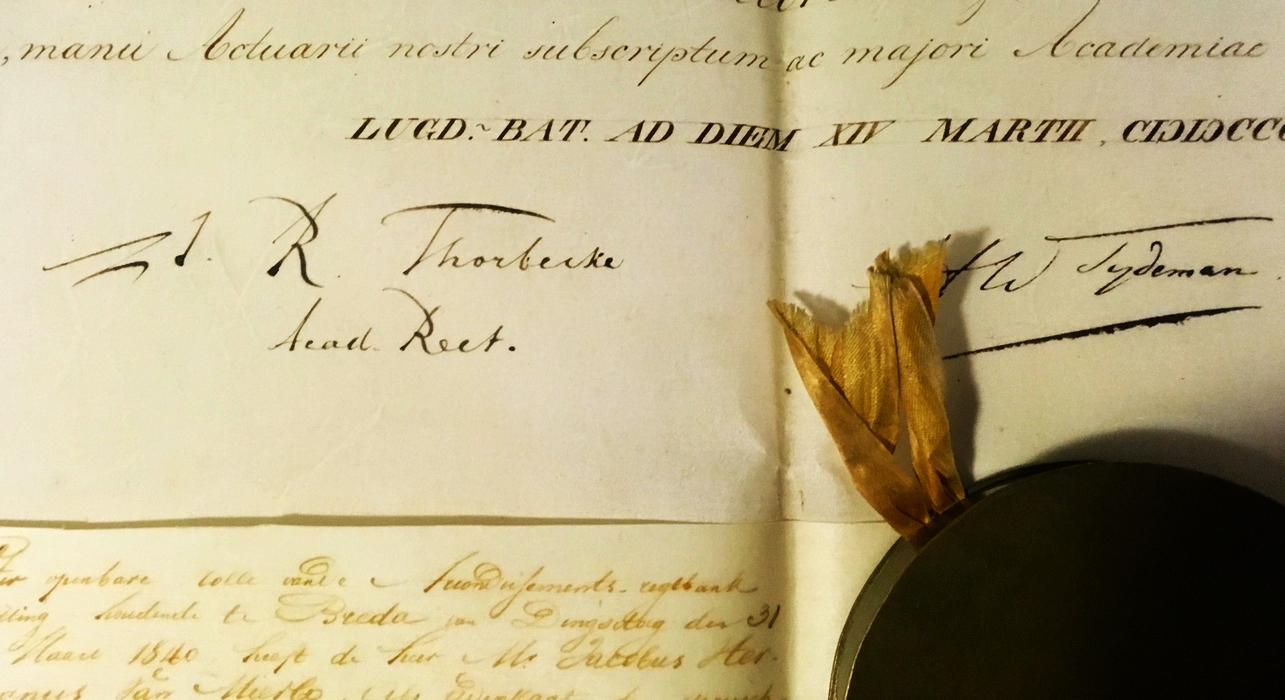 , manu Actuarii nostri subscriptum ac majori Academiae
LUGD.~BAT. AD DIEM XIV MARTII, CIƆIƆCCC
J. R. Thorbecke
HW Tydeman.
Acad. Rect.
Ter openbare rolle van de Arrondissements-regtbank
houdende te Breda van Dingsdag den 31
Maart 1840. heeft de heer Mr. Jacobus Her-
manus Van Mierlo, als Advokaat de